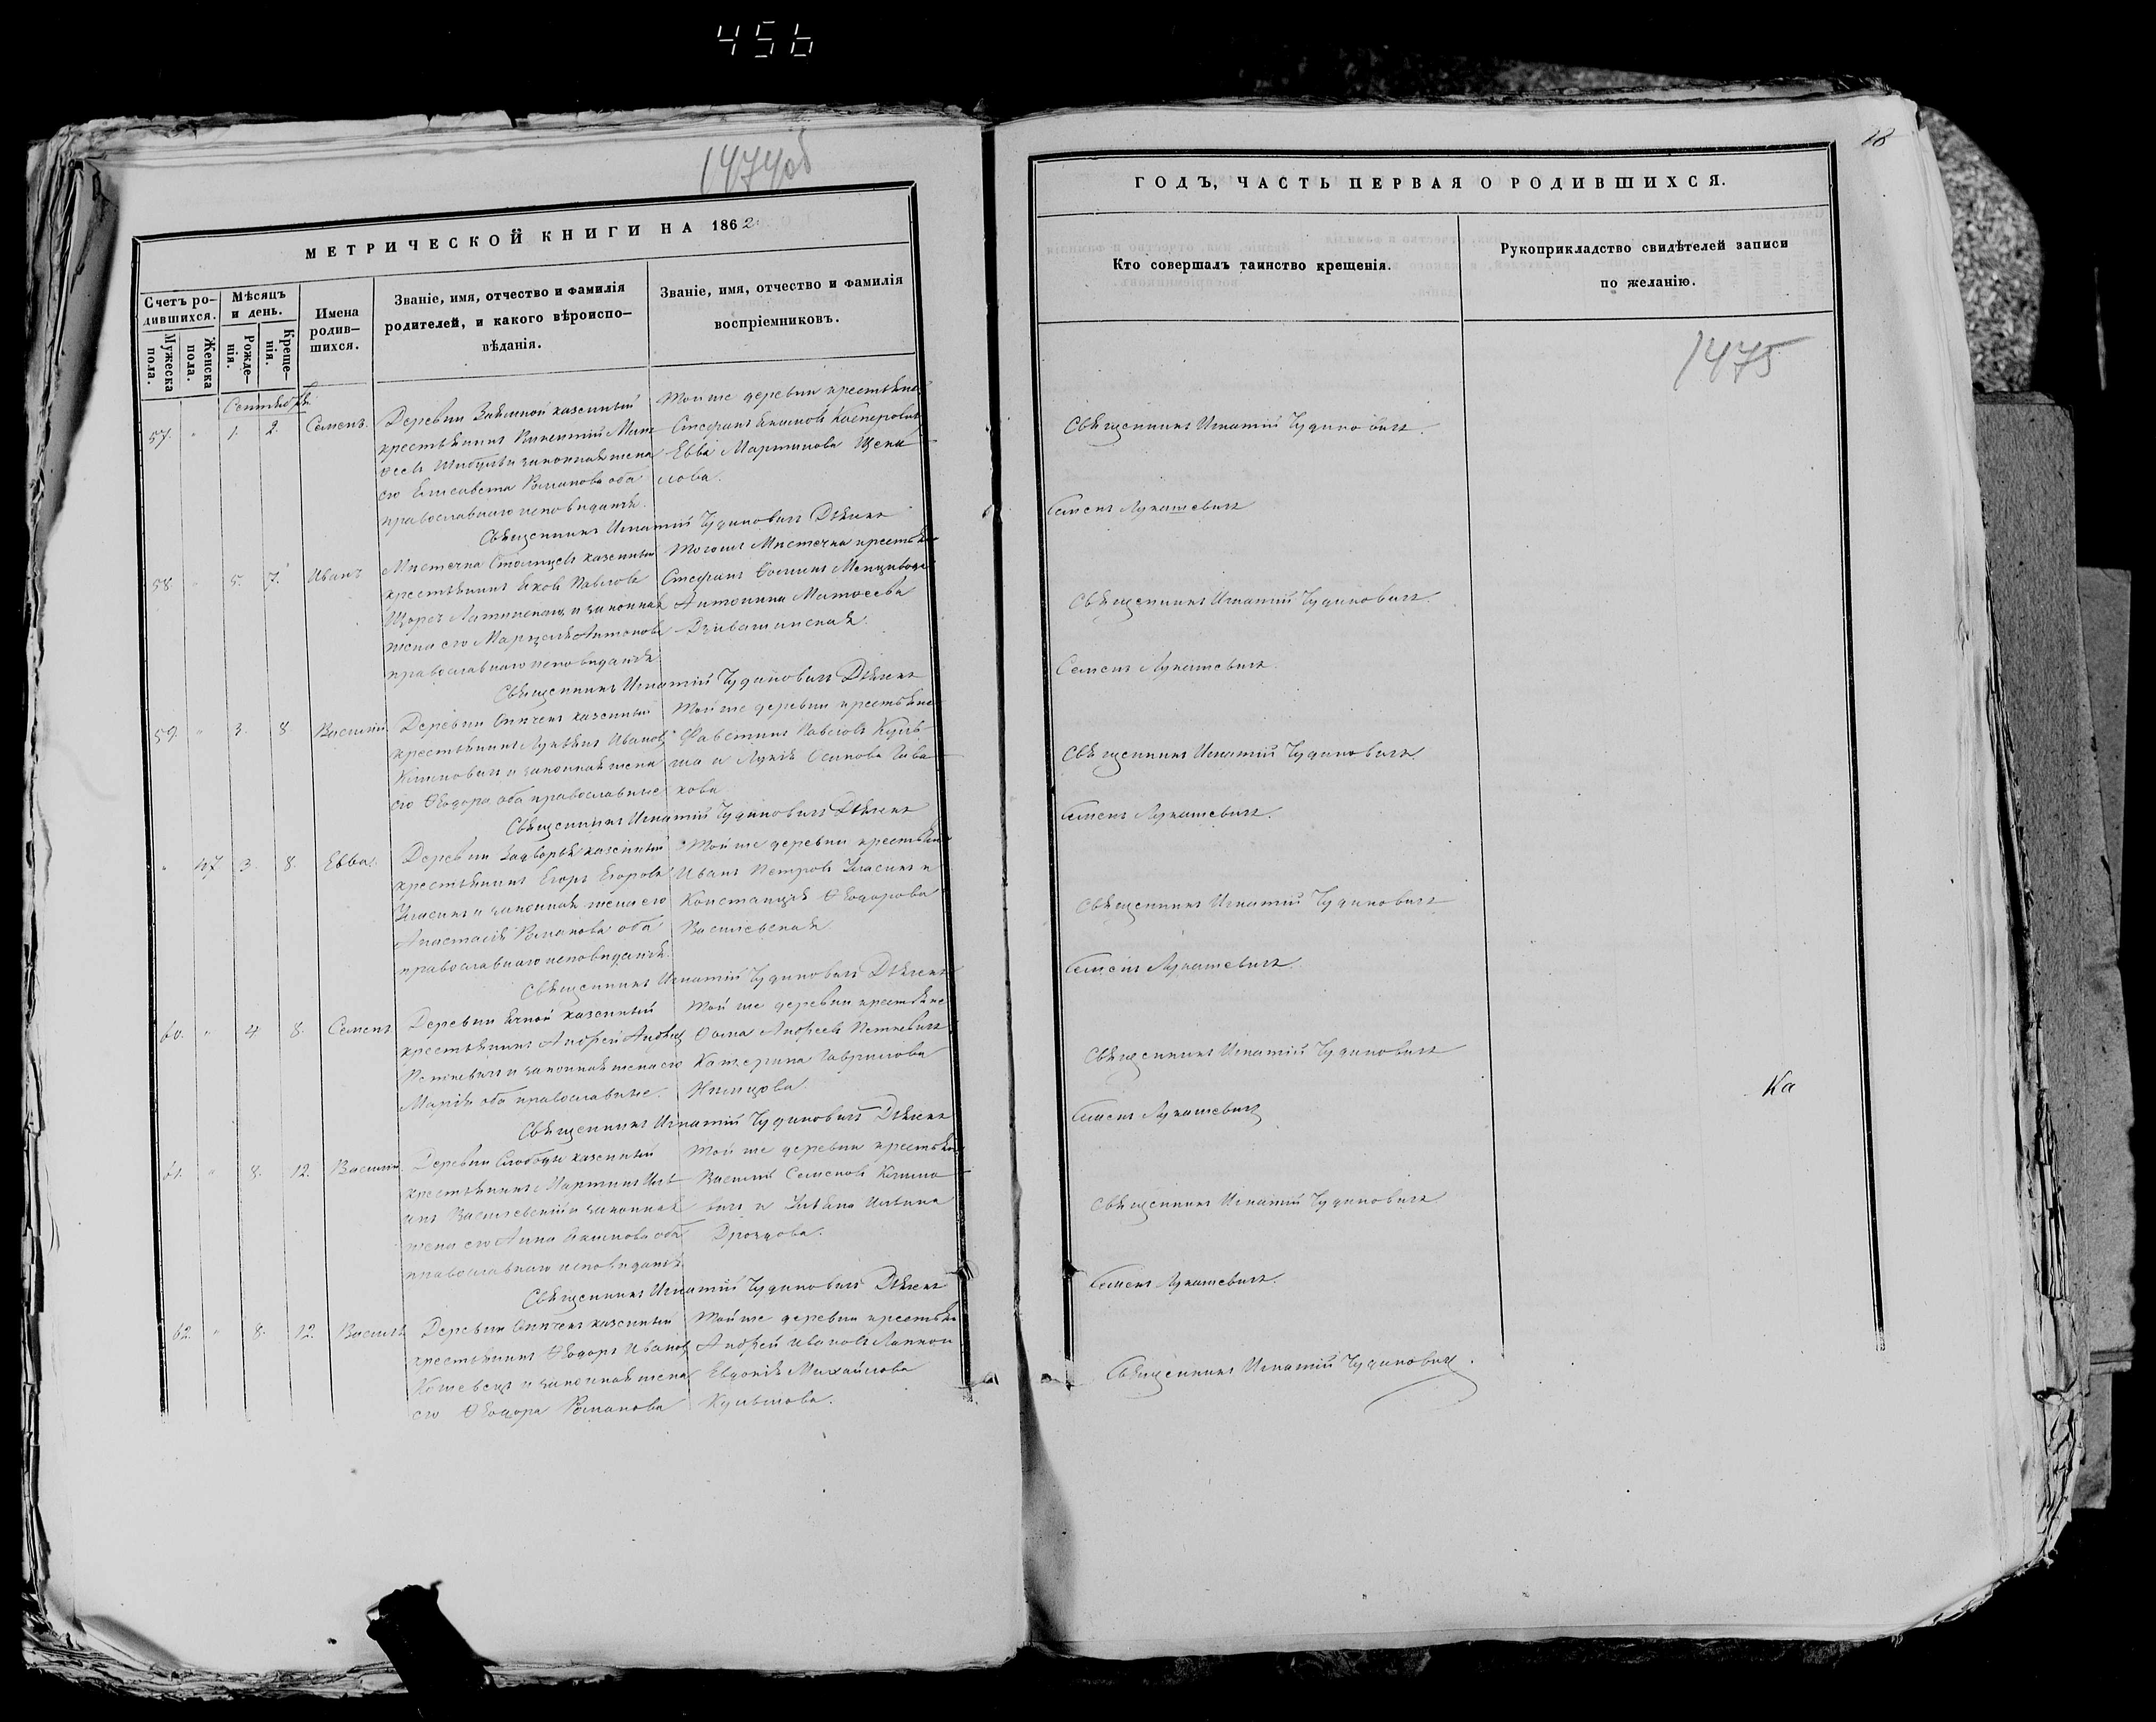 456
1474об
МЕТРИЧЕСКОЙ КНИГИ НА 1862
Счетъ родившихся.
Мужеска пола.
Женска пола.
Мѣсяцъ и день.
Рожденія.
Крещенія.
Имена родившихся.
Званіе, имя, отчество и фамилія
родителей, и какого вѣроиспо-
вѣданія.
Званіе, имя, отчество и фамилія
воспріемниковъ.
Сентябрь
57. " 1. 2. Семенъ.
Деревни казенный
крестьянинъ Викентій
и законная жена
его Елисавета Романова оба
православнаго исповиданія.
Той же деревни крестьяне
Стефанъ Касперовичъ
Евва Мартинова
лова.
Священникъ Игнатій Чудиновичъ Дьячекъ
58 " 5. 7. Иванъ
Мистечка Столпцевъ казенный
крестьянинъ Яковъ Павловъ
Щорсъ Латинскаго и законная
жена его Марцеля Антонова
православнаго исповиданія
Тогожъ Мистечка крестьяне
Стефанъ
Антонина Матвеева
Священникъ Игнатій Чудиновичъ Дьячекъ
59. " 3. 8 Василій
Деревни казенный
крестьянинъ Иванов
Климовичъ и законная жена
его Ѳеодора оба православные
Той же деревни крестьяне
Фавстинъ Павловъ Куль-
ша и Лукія Осипова
кова.
Священникъ Игнатій Чудиновичъ Дьячекъ
" 47 3. 8. Евва.
Деревни Задворья казенный
крестьянинъ Егоръ Егоровъ
и законная жена его
Анастасія Романова оба
православнаго исповиданія.
Той же деревни крестьяне
Иванъ Петровъ и
Констанція Ѳеодорова
Василевская
Священникъ Игнатій Чудиновичъ Дьячекъ
60. " 4 8. Семенъ
Деревни казенный
крестьянинъ Андрей
Петкевичъ и законная жена его
Марія оба православные.
Той же деревни крестьяне
Ѳома Андреевъ Петкевичъ
Катерина Гаврилова
Нимцова.
Священникъ Игнатій Чудиновичъ Дьячекъ
61. " 8. 12. Василій
Деревни Слободы казенный
крестьянинъ Мартинъ
Василевскій и законная
жена его Анна оба
православнаго исповиданія
Той же деревни крестьяне
Василій Семеновъ Климо-
вичъ и Ульяна
Дроздова.
Священникъ Игнатій Чудиновичъ Дьячекъ
62. " 8. 12. Василій
Деревни казенный
крестьянинъ Ѳеодоръ Иванов
и законная жена
его Ѳеодора Романова
Той же деревни крестьяне
Андрей Ивановъ
Евдокія Михайлова
Кульшова.
18
ГОДЪ, ЧАСТЬ ПЕРВАЯ О РОДИВШИХСЯ.
Кто совершалъ таинство крещенія.
Рукоприкладство свидѣтелей записи
по желанію.
1475
Священникъ Игнатій Чудиновичъ.
Семенъ Лукашевичъ
Священникъ Игнатій Чудиновичъ.
Семенъ Лукашевичъ.
Священникъ Игнатій Чудиновичъ.
Семенъ Лукашевичъ.
Священникъ Игнатій Чудиновичъ
Семенъ Лукашевичъ.
Священникъ Игнатій Чудиновичъ
Ка
Семенъ Лукашевичъ
Священникъ Игнатій Чудиновичъ
Семенъ Лукашевичъ.
Священникъ Игнатій Чудиновичъ.